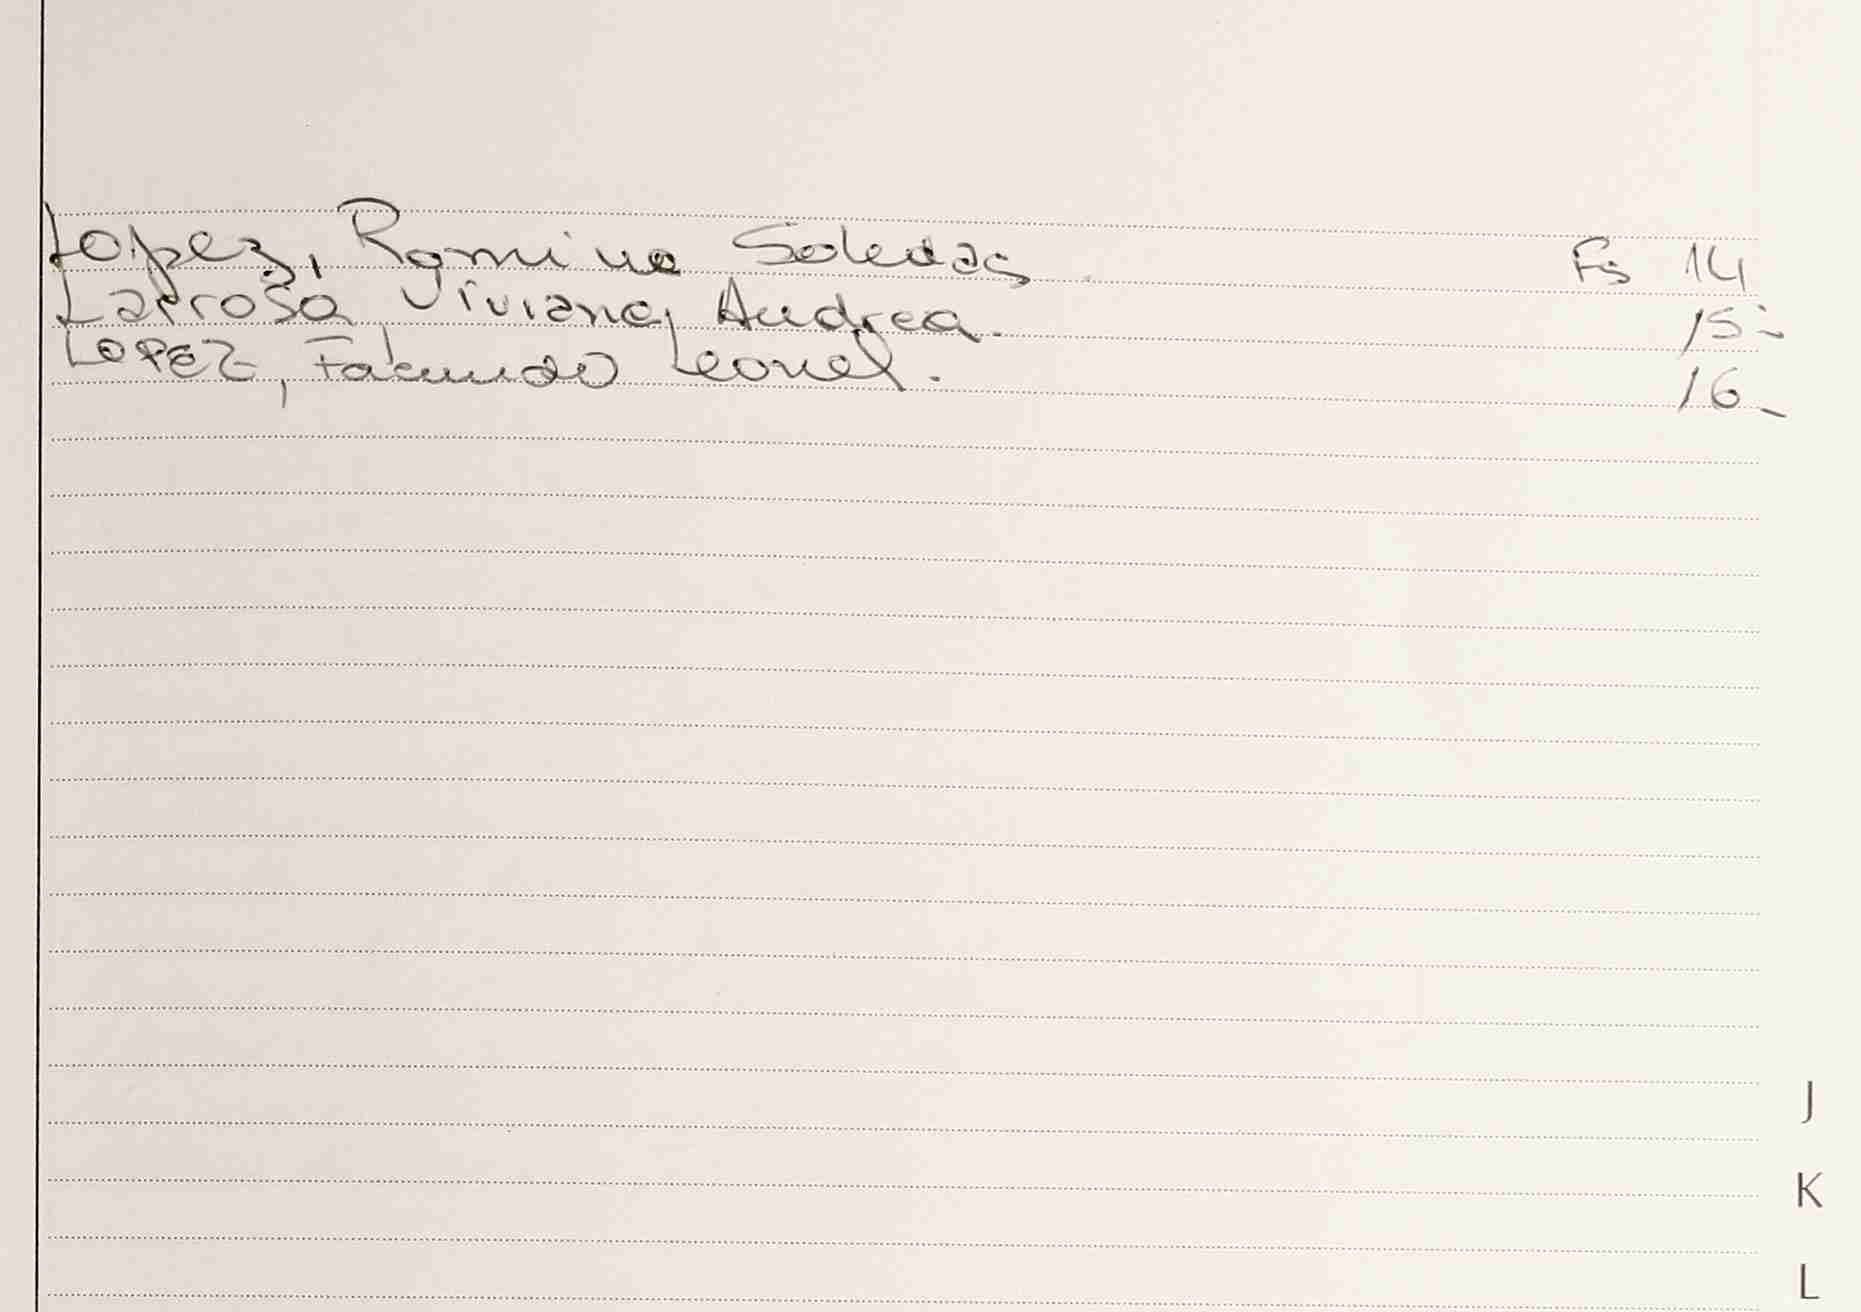 Lopez, Romina Soledad Fs 14
Larrosa Viviana, Andrea. 15-
LOPEZ, Facundo Leonel. 16-
J
K
L